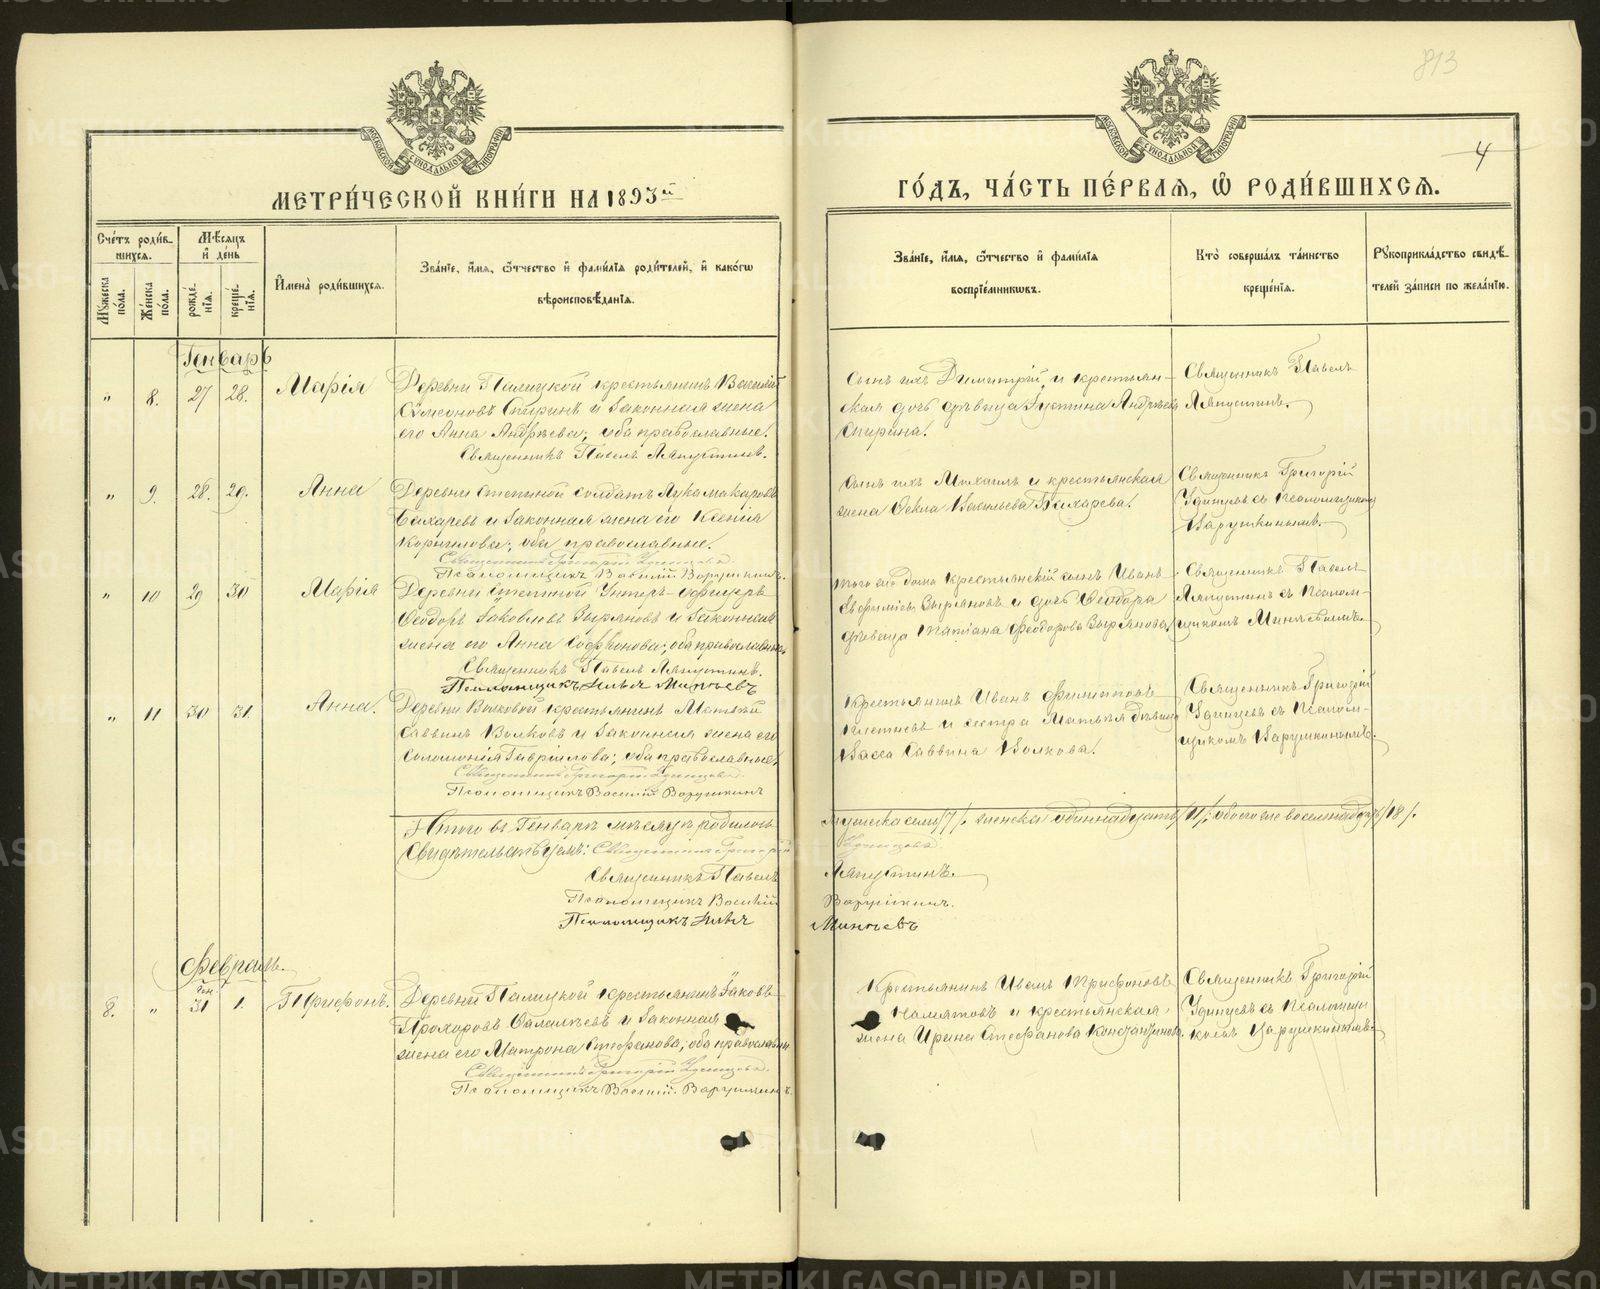 813
4
МОСКОВСКОЙ СѴНОДАЛЬНОЙ ТИПОГРАФІИ
МОСКОВСКОЙ СѴНОДАЛЬНОЙ ТИПОГРАФІИ
МЕТРИ́ЧЕСКОЙ КНИ́ГИ НА 1893й
ГО́ДЪ, ЧА́СТЬ ПЕ́РВАЯ, Ѽ РОДИ́ВШИХСЯ.
Сче́тъ роди́в-
шихся.
Мꙋжеска
по́ла.
Же́нска
по́ла.
Мѣ́сяцъ
и̑ де́нь
рожде́-
нія.
креще́-
нія.
И̑мена̀ роди́вшихся.
Зва́ніе, и̑́мя, ѻ҆́тчество и̑ фами́лія роди́телей, и̑ како́гѡ
вѣроисповѣ́данія.
Зва́ніе, и̑́мя, ѻ҆́тчество и̑ фами́лія
воспріе́мникѡвъ.
Кто̀ соверша́лъ та́инство
креще́нія.
Рꙋкоприкла́дство свидѣ́-
телей за́писи по жела́нію.
Генварь
" 8. 27 28. Марія
Деревни Палицкой крестьянинъ Василій
Сѵмеоновъ Спиринъ и законная жена
его Анна Андреева; оба православные.
Священникъ Павелъ Ляпустинъ.
Сынъ ихъ Димитрій и крестьян-
ская дочь дѣвица Іустина Андреева
Спирина.
Священникъ Павелъ
Ляпустинъ.
" 9. 28. 29. Анна
Деревни Степиной солдатъ Лука Макаровъ
Бахаревъ и законная жена его Ксенія
Корнилова; оба православные.
Священникъ Григорій Удинцевъ.
Псаломщикъ Василій Варушкинъ.
Сынъ ихъ Михаилъ и крестьянская
жена Ѳекла Васильева Бахарева.
Священникъ Григорій
Удинцевъ съ Псаломщикомъ
Варушкинымъ.
" 10 29 30 Марія
Деревни Степиной Унтеръ-офицеръ
Ѳеодоръ Іаковлевъ Зыряновъ и законная
жена его Анна Софронова; оба православные.
Священникъ Павелъ Ляпустинъ.
Псаломщикъ Илья Минѣевъ
того села дома крестьянскій сынъ Иванъ
Евфиміевъ Зыряновъ и дочь Ѳеодора
дѣвица Татіана Ѳеодорова Зырянова.
Священникъ Павелъ
Ляпустинъ съ Псалом-
щикомъ Минѣевымъ.
" 11 30 31. Анна.
Деревни Волковой крестьянинъ Матѳей
Саввинъ Волковъ и законная жена его
Соломонія Гавріилова; оба православные.
Священникъ Григорій Удинцевъ.
Псаломщикъ Василій Варушкинъ
Крестьянинъ Иванъ Филипповъ
Плетневъ и сестра Матѳея дѣвица
Васса Саввина Волкова.
Священникъ Григорій
Удинцевъ съ Псалом-
щикомъ Варушкинымъ.
Итого въ Генварѣ мѣсяцѣ родилось
мужеска семь /7/. женска одиннадцать /11/. обоего пола восемнадцать /18/.
Свидѣтельствуемъ: Священникъ Григорій
Удинцевъ.
Священникъ Павелъ
Ляпустинъ.
Псаломщикъ Василій
Варушкинъ.
Псаломщикъ Илья
Минѣевъ
Февраль.
8. " Ген. 31 1. Трифонъ.
Деревни Палицкой крестьянинъ Іаковъ
Прохоровъ и законная
жена его Матрона Стефанова; оба православные
Священникъ Григорій Удинцевъ.
Псаломщикъ Василій Варушкинъ.
Крестьянинъ Иванъ Трифоновъ
и крестьянская
жена Ирина Стефанова Константинова.
Священникъ Григорій
Удинцевъ съ Псаломщи-
комъ Варушкинымъ.
METRIKI.GASO-URAL.RU